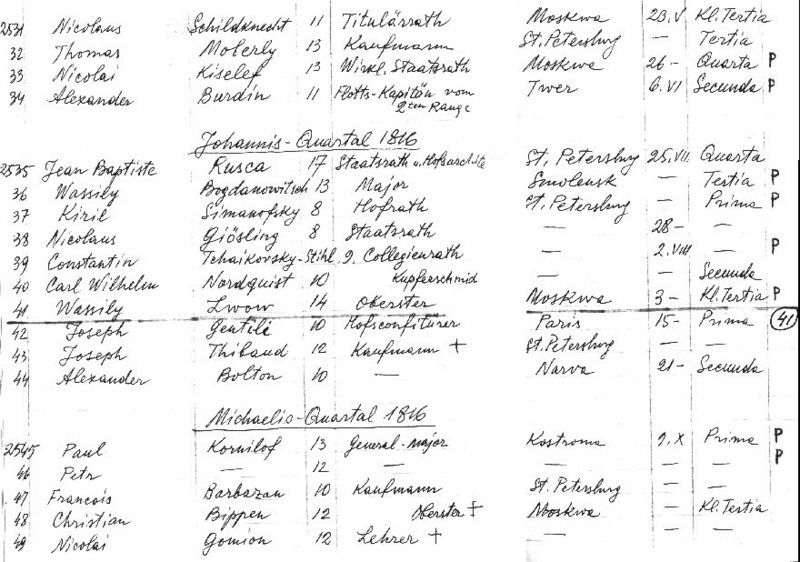 2531 Nicolaus Schildknecht 11 Titulärrath Moskwa 23.V Kl. Tertia
32 Thomas Moberly 13 Kaufmann St. Petersburg — Tertia
33 Nicolai Kiselef 13 Wirkl. Staatsrath Moskwa 26- Quarta P
34 Alexander Burdin 11 Flotts-Kapitän vom Twer 6.VI Secunda P
2ten Range
Johannis-Quartal 1816
2535 Jean Baptiste Rusca 17 Staatsrath u. Hofarchite St. Petersburg 25.VII. Quarta
36 Wassily Bogdanowitsch 13 Major Smolensk — Tertia P
37 Kiril Simanofsky 8 Hofrath St. Petersburg — Prima P
38 Nicolaus Giösling 8 Staatsrath — 28- —
39 Constantin Tchaikovsky-Stihl. 9. Collegienrath — 2.VIII — P
40 Carl Wilhelm Nordquist 10 Kupferschmid — — Secunda
41 Wassily Lwow 14 Oberster Moskwa 3- Kl. Tertia P
42 Joseph Gentili 10 Hofsconfitürer Paris 15- Prima 41
43 Joseph Thibaud 12 Kaufmann + St. Petersburg — —
44 Alexander Bolton 10 — Narva 21- Secunda
Michaelis-Quartal 1816
2545 Paul Kornilof 13 General-major Kostroma 9.X Prima P
46 Petr — 12 — — — — P
47 Francois Barbazan 10 Kaufmann St. Petersburg — —
48 Christian Bippen 12 Oberster + Moskwa — Kl. Tertia
49 Nicolai Gomion 12 Lehrer + — — —